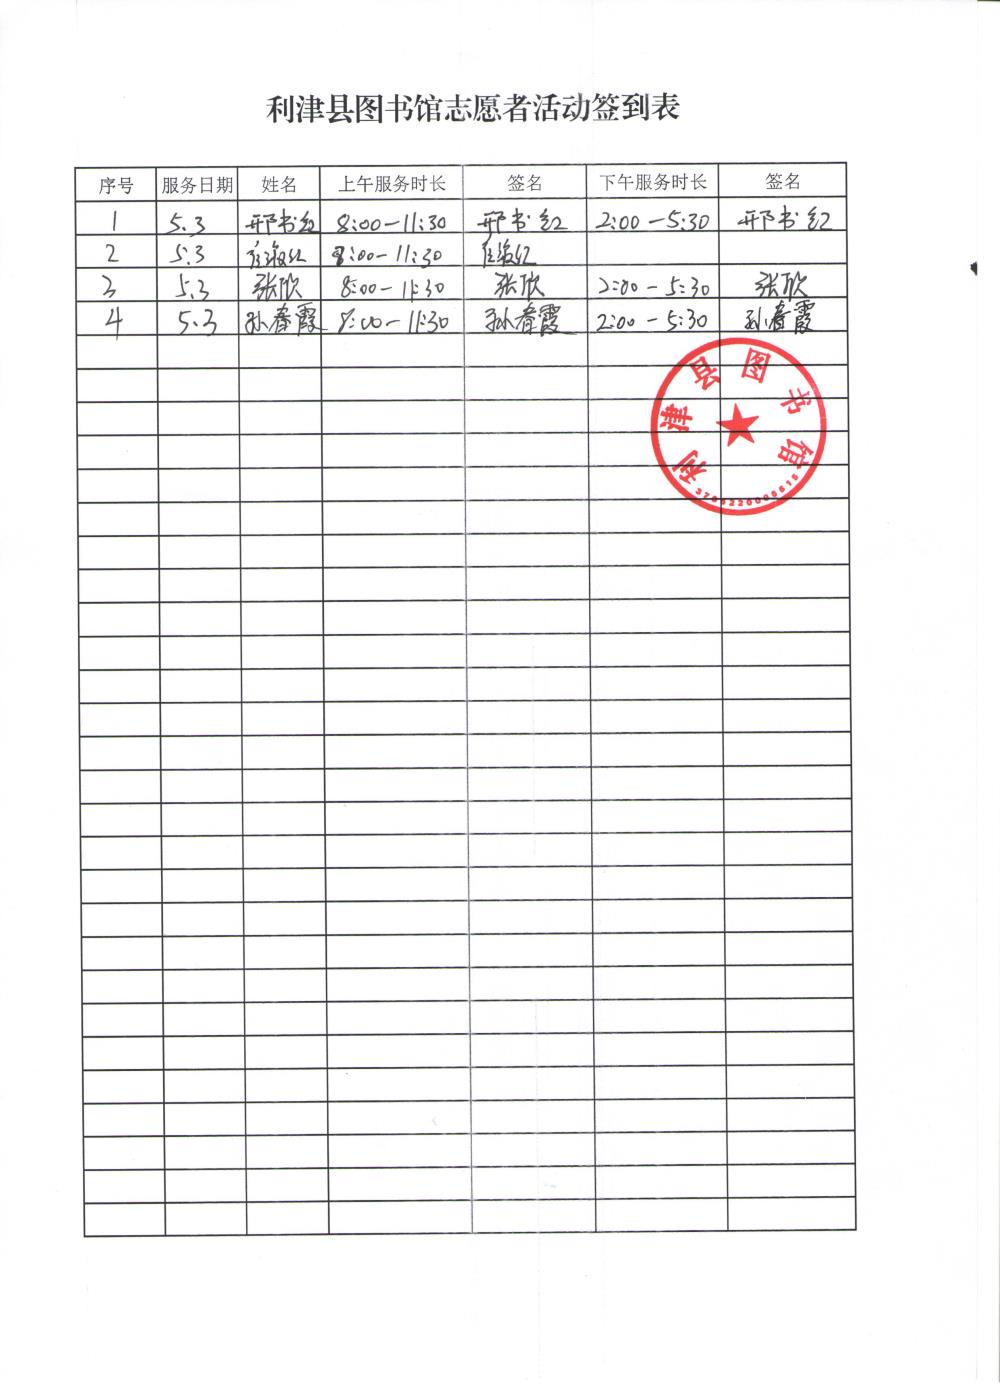 利津县图书馆志愿者活动签到表
序号 服务日期 姓名 上午服务时长 签名 下午服务时长 签名
1 5.3 邢书红 8:00-11:30 邢书红 2:00-5:30 邢书红
2 5.3 8:00-11:30
3 5.3 张欣 8:00-11:30 张欣 2:00-5:30 张欣
4 5.3 孙春霞 8:00-11:30 孙春霞 2:00-5:30 孙春霞
利津县图书馆